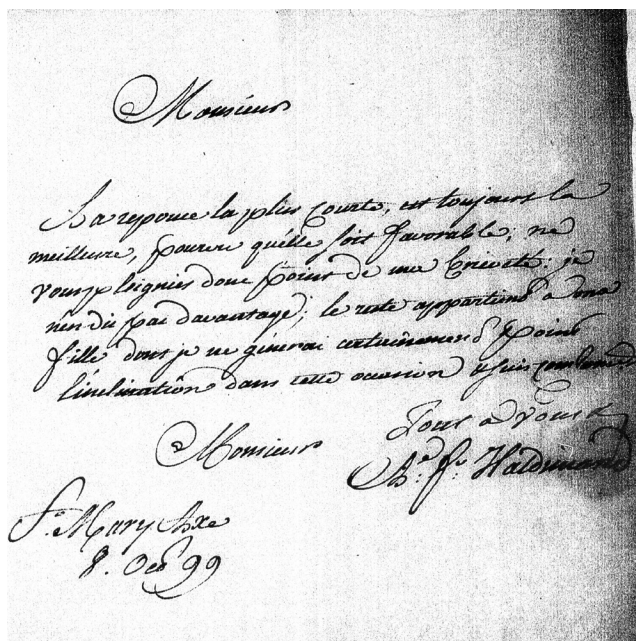 Monsieur
La reponce la plus courte, est toujours la
meilleure, pourvu qu'elle soit favorable, ne
vous pleignies donc point de ma brieveté; je
n'en dis pas davantage; le reste appartient a ma
fille dont je ne génerai certainement point
l'inclination dans cette occasion
Tout a vous
Monsieur
A. F. Haldimand
St. Mary Axe
8. Oct 99